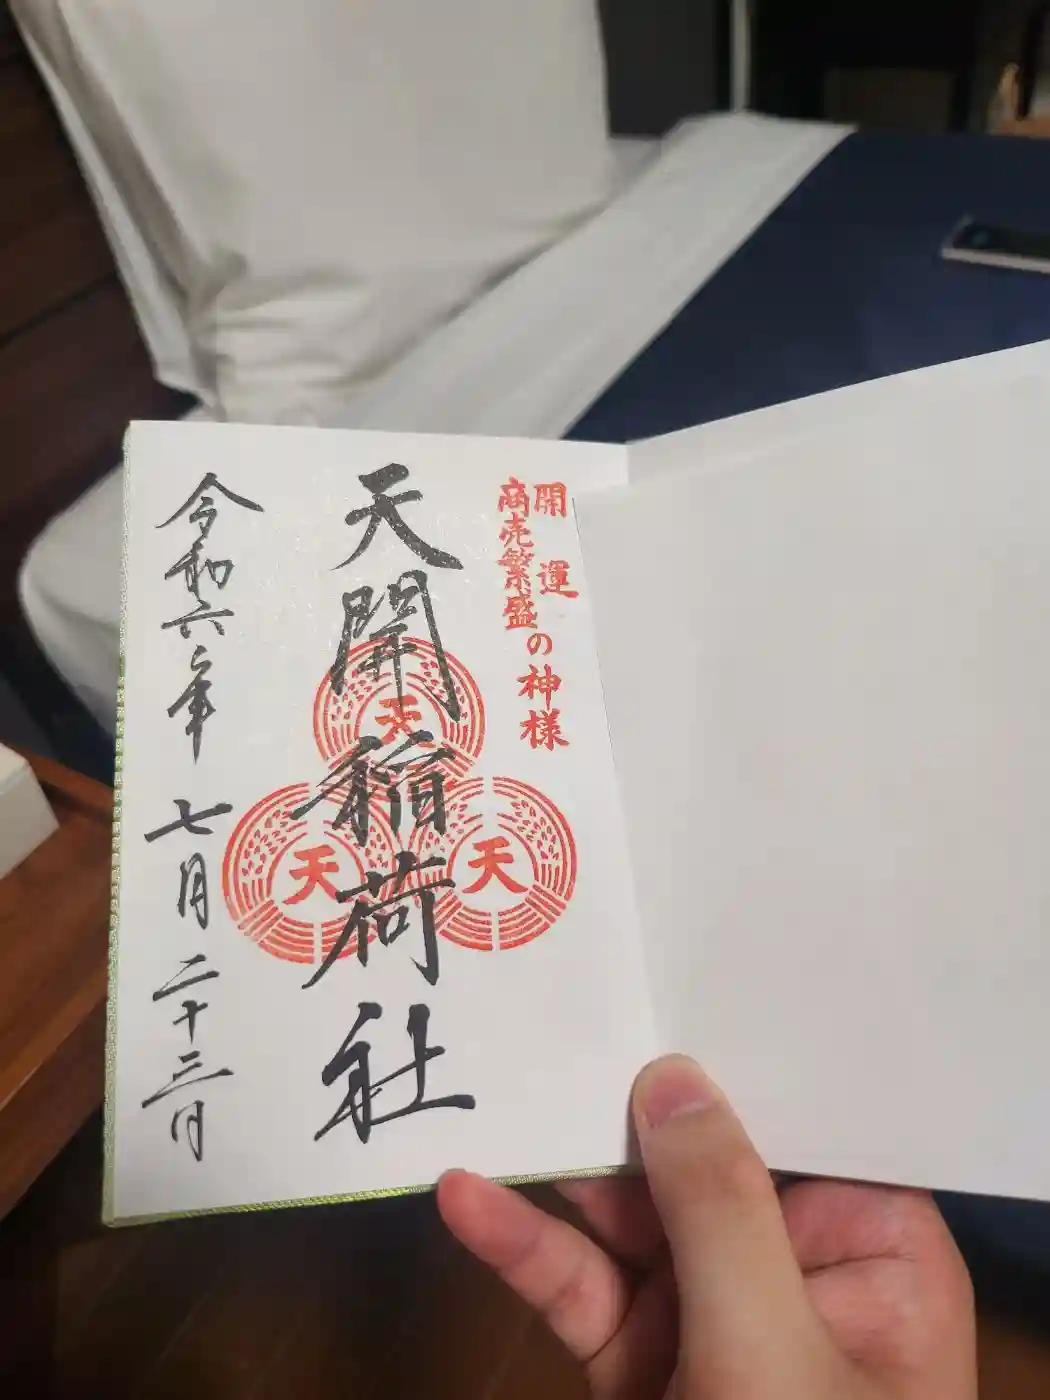 開運
商売繁盛
の神様
天開稲荷社
天
天
天
令和六年 七月 二十三日